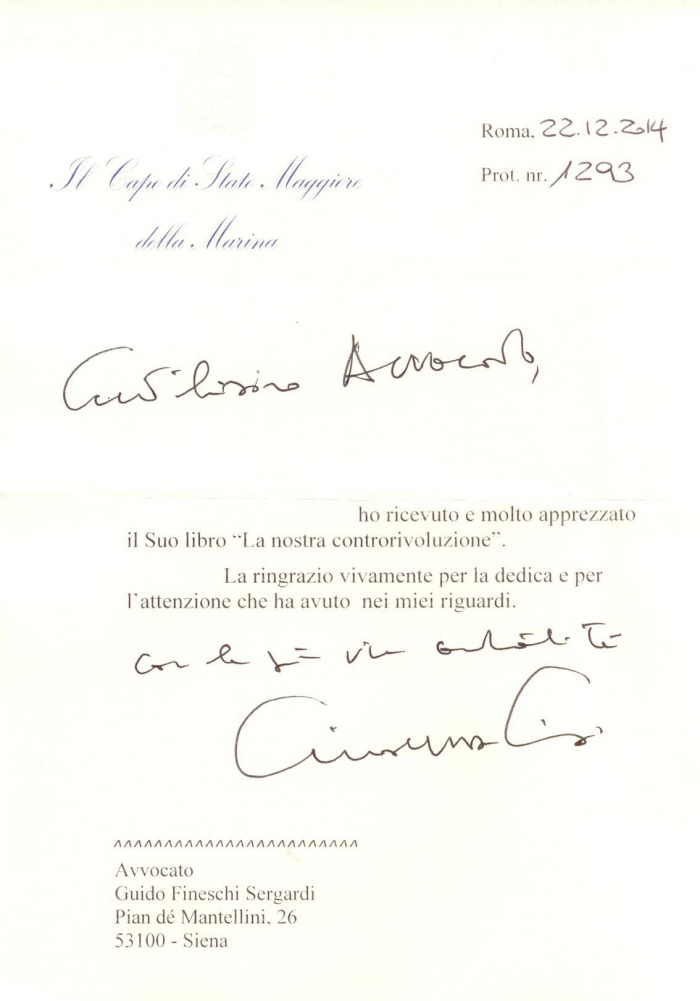 Roma, 22.12.2014
Il Capo di Stato Maggiore
Prot. nr. 1293
della Marina
Gentilissimo Avvocato,
ho ricevuto e molto apprezzato
il Suo libro “La nostra controrivoluzione”.
La ringrazio vivamente per la dedica e per
l'attenzione che ha avuto nei miei riguardi.
con la più viva cordialità
^^^^^^^^^^^^^^^^^^^^^^^^
Avvocato
Guido Fineschi Sergardi
Pian dé Mantellini, 26
53100 - Siena